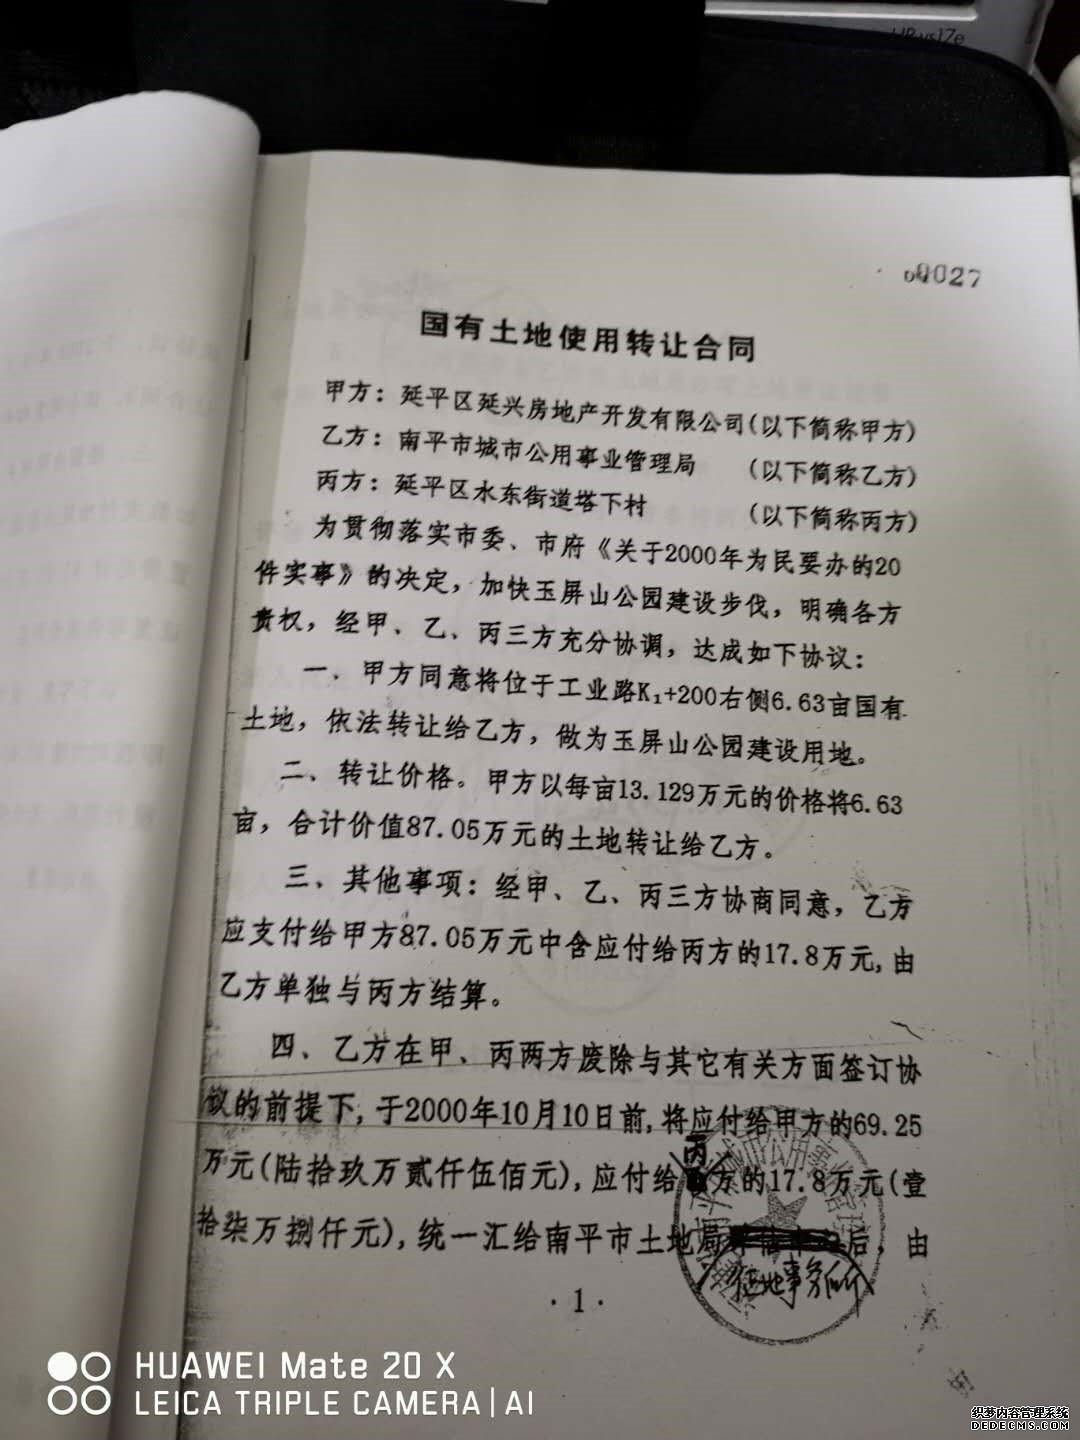 00027
国有土地使用转让合同
甲方：延平区延兴房地产开发有限公司(以下简称甲方)
乙方：南平市城市公用事业管理局 (以下简称乙方)
丙方：延平区水东街道塔下村 (以下简称丙方)
为贯彻落实市委、市府《关于2000年为民要办的20
件实事》的决定，加快玉屏山公园建设步伐，明确各方
责权，经甲、乙、丙三方充分协调，达成如下协议：
一．甲方同意将位于工业路K₁+200右侧6.63亩国有
土地，依法转让给乙方，做为玉屏山公园建设用地。
二、转让价格。甲方以每亩13.129万元的价格将6.63
亩，合计价值87.05万元的土地转让给乙方。
三、其他事项：经甲、乙、丙三方协商同意，乙方
应支付给甲方87.05万元中含应付给丙方的17.8万元,由
乙方单独与丙方结算。
四、乙方在甲、丙两方废除与其它有关方面签订协
议的前提下,于2000年10月10日前,将应付给甲方的69.25
丙
万元(陆拾玖万贰仟伍佰元),应付给方的17.8万元(壹
拾柒万捌仟元),统一汇给南平市土地局后，由
征地事务所
·1·
HUAWEI Mate 20 X
LEICA TRIPLE CAMERA | AI
织梦内容管理系统
DEDECMS.COM